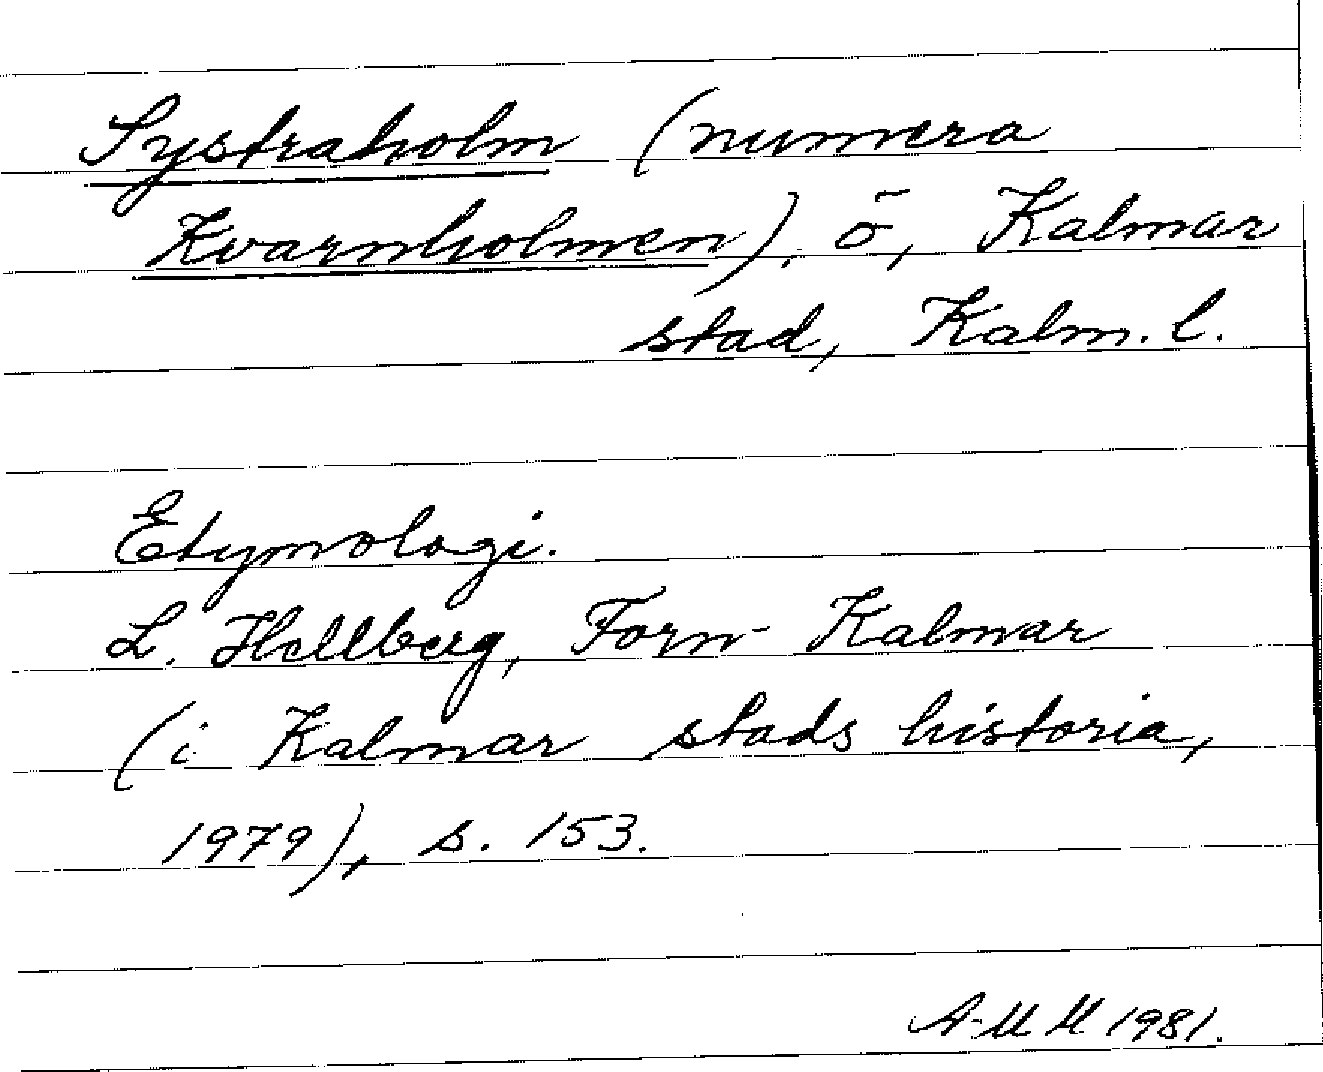 Systraholm (numera
Kvarnholmen), ö, Kalmar
stad, Kalm. l.
Etymologi.
L. Hellberg, Forn-Kalmar
(i Kalmar stads historia,
1979), s. 153.
A-M M 1981.